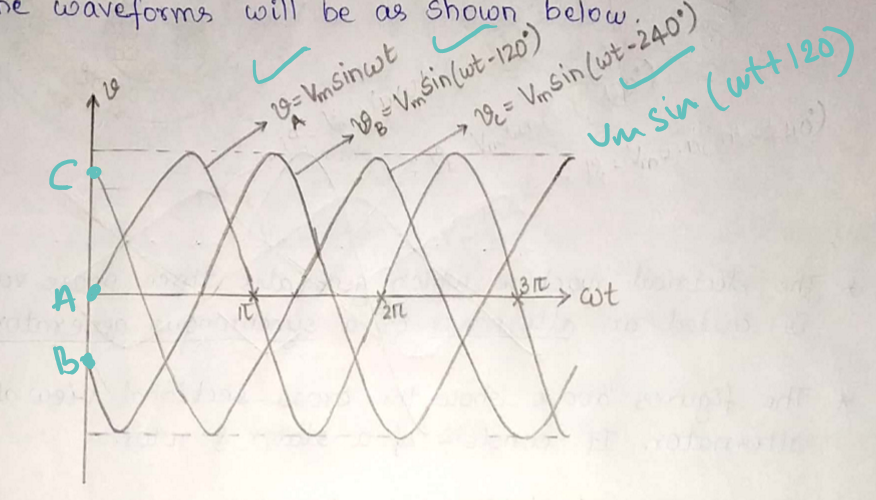 waveforms will be as shown below.
v
v_A = Vm sin ωt
v_B = Vm sin(ωt-120°)
v_C = Vm sin(ωt-240°)
Vm sin(ωt+120)
C
A
B
π
2π
3π
ωt